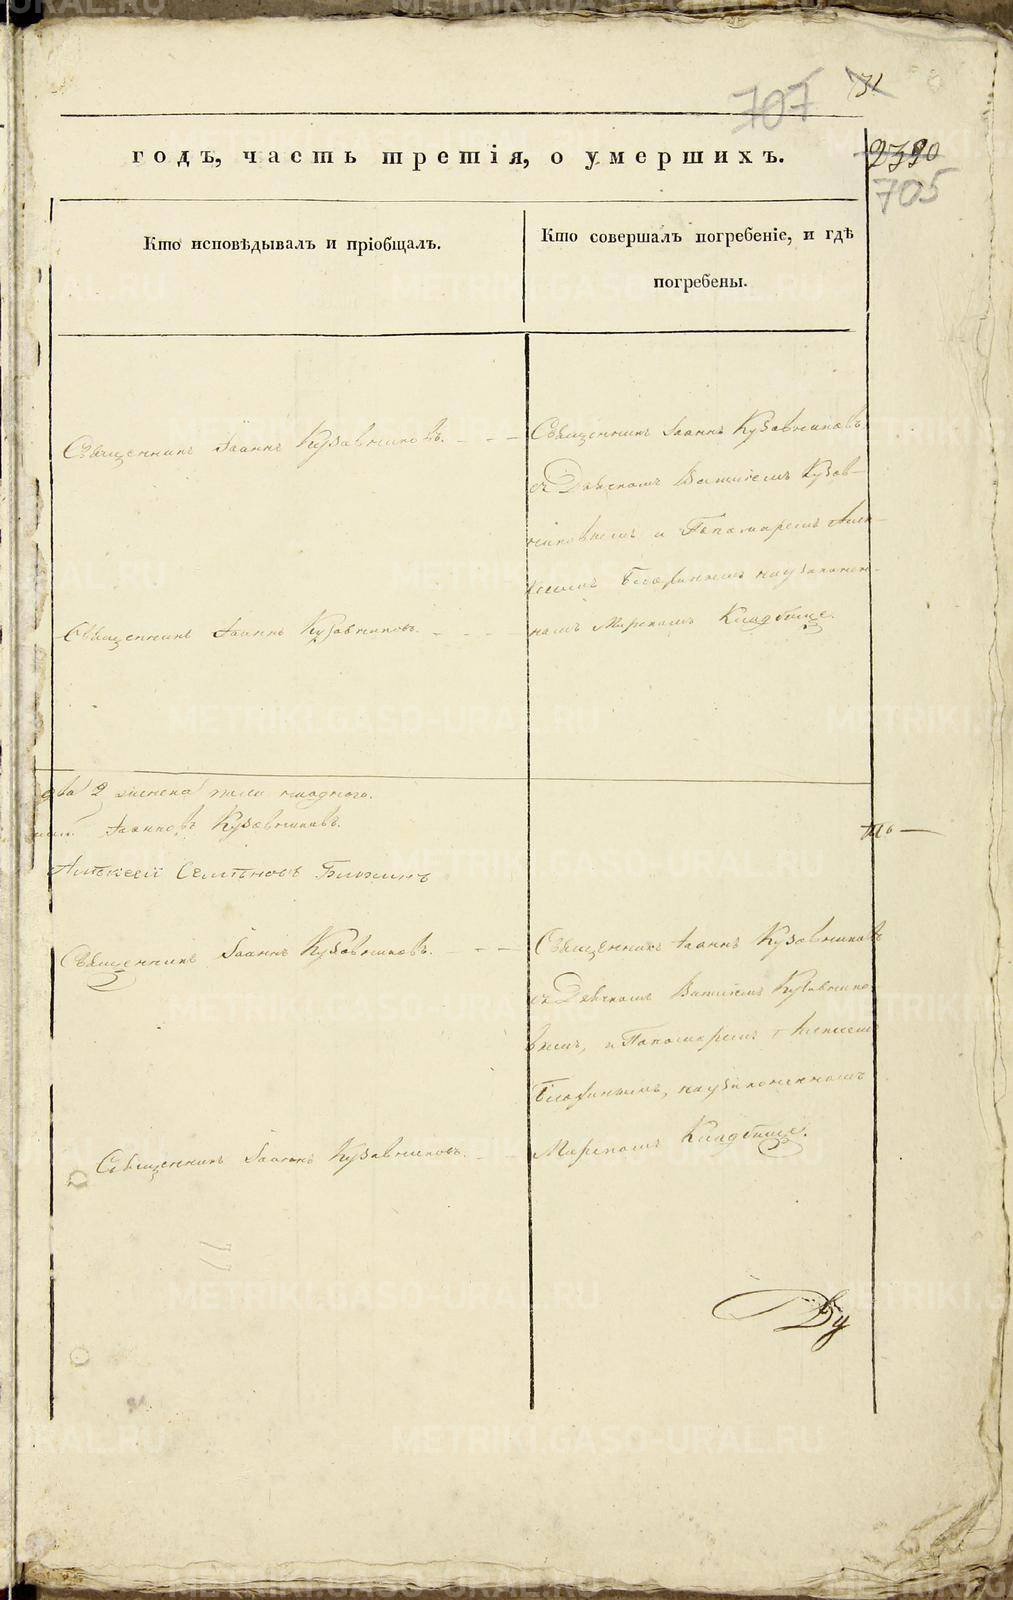 707 31
годъ, часть третія, о умершихъ.
2390
705
Кто исповѣдывалъ и пріобщалъ.
Кто совершалъ погребеніе, и гдѣ
погребены.
Священникъ Іоаннъ Кузовниковъ.
Священникъ Іоаннъ Кузовниковъ
съ Дьячкомъ Василіемъ Кузов-
никовымъ и Пономаремъ Алек-
сеемъ на узаконен-
номъ Мирскомъ Кладбище.
Священникъ Іоаннъ Кузовниковъ.
два 2 младаго.
Іоанновъ Кузовниковъ.
Алексѣй Семёновъ
ть
Священникъ Іоаннъ Кузовниковъ.
Священникъ Іоаннъ Кузовниковъ
съ Дьячкомъ Василіемъ Кузовнико-
вымъ, и Пономаремъ Алексеем
на узаконенномъ
Мирскомъ Кладбище.
Священникъ Іоаннъ Кузовниковъ.
Ду
METRIKI.GASO-URAL.RU